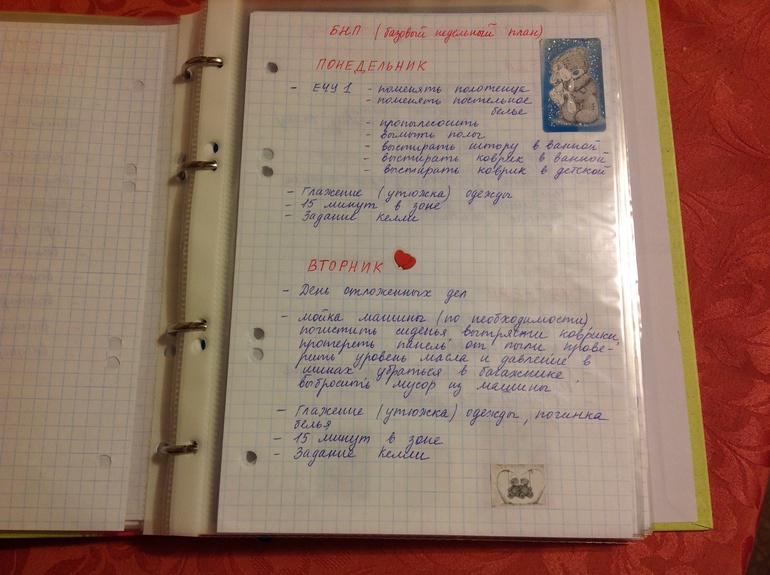 БНП (базовый недельный план)
ПОНЕДЕЛЬНИК
- ЕЧУ 1 - поменять полотенца
- поменять постельное
белье
- пропылесосить
- вымыть полы
- выстирать штору в ванной
- выстирать коврик в ванной
- выстирать коврик в детской
- Глажение (утюжка) одежды
- 15 минут в зоне
- Задание келли
ВТОРНИК
- День отложенных дел
- мойка машины (по необходимости),
почистить сиденья, вытрясти коврики,
протереть панель от пыли, прове-
рить уровень масла и давление в
шинах, убраться в багажнике,
выбросить мусор из машины
- Глажение (утюжка) одежды, починка
белья
- 15 минут в зоне
- Задание келли